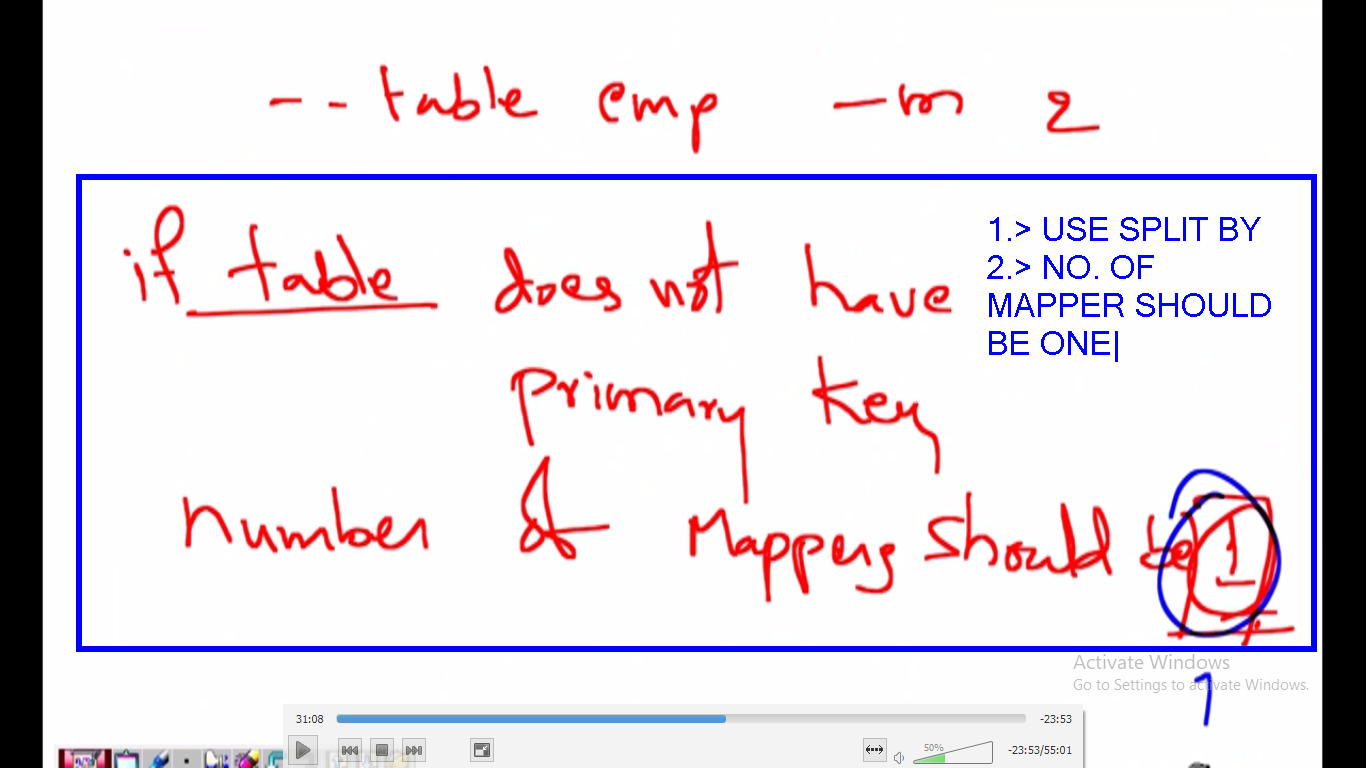 -- table emp -m 2
if table does not have
primary key
number of Mappers should be 1
1.> USE SPLIT BY
2.> NO. OF
MAPPER SHOULD
BE ONE|
1
Activate Windows
Go to Settings to activate Windows.
31:08
-23:53
50%
-23:53/55:01